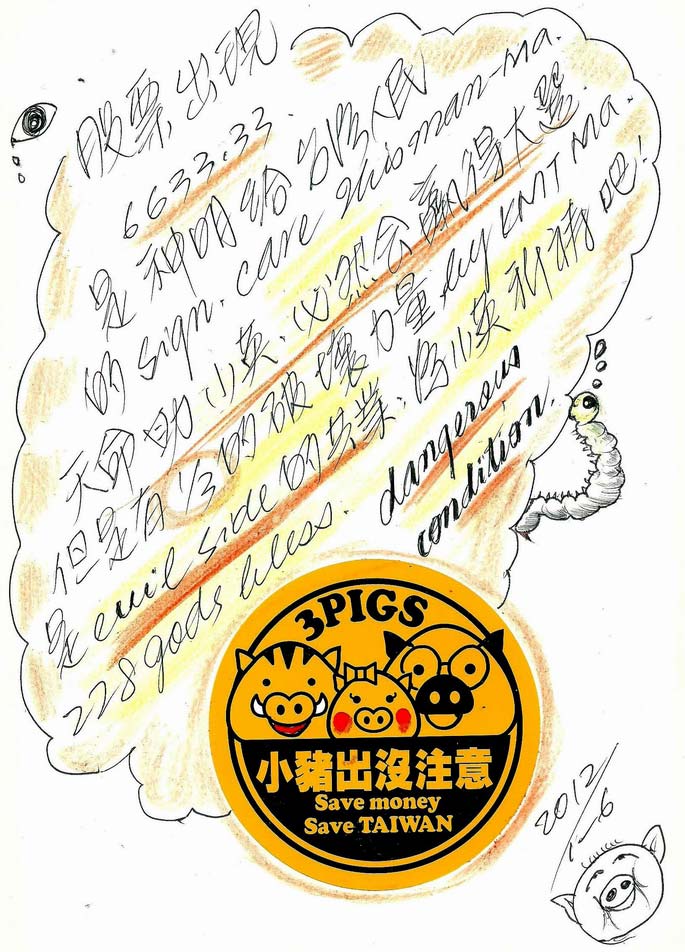 股票出現
6633.33
是神明給台灣人民
的 sign. care this man-ma.
天命助小英.必然会贏得大選.
但是有1/3的破壞力量 by KMT Ma.
是 evil side 的共業.為小英祈禱吧!
228 gods bless.
dangerous
condition.
3PIGS
小豬出沒注意
Save money
Save TAIWAN
2012/1-6